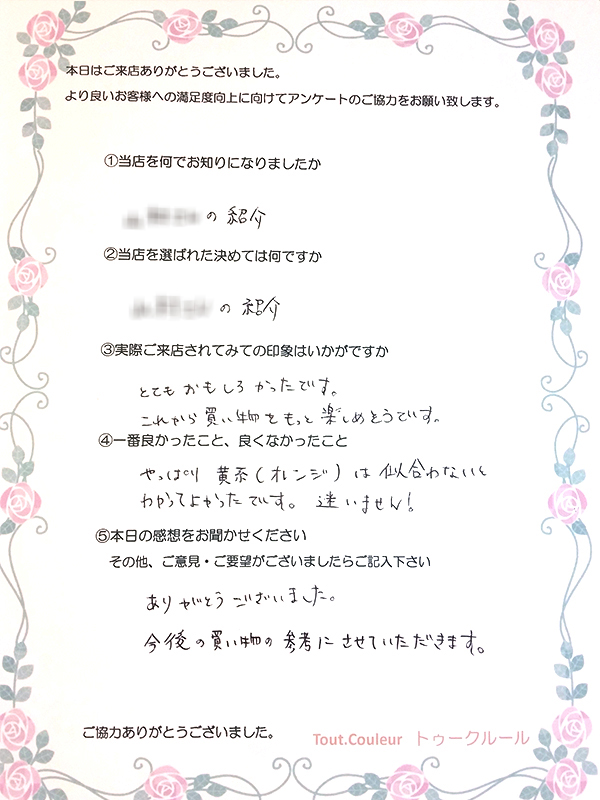 本日はご来店ありがとうございました。
より良いお客様への満足度向上に向けてアンケートのご協力をお願い致します。
①当店を何でお知りになりましたか
の紹介
②当店を選ばれた決めては何ですか
の紹介
③実際ご来店されてみての印象はいかがですか
とてもおもしろかったです。
これから買い物をもっと楽しめそうです。
④一番良かったこと、良くなかったこと
やっぱり黄系(オレンジ)は似合わないと
わかってよかったです。迷いません!
⑤本日の感想をお聞かせください
その他、ご意見・ご要望がございましたらご記入下さい
ありがとうございました。
今後の買い物の参考にさせていただきます。
ご協力ありがとうございました。
Tout.Couleur トゥークルール